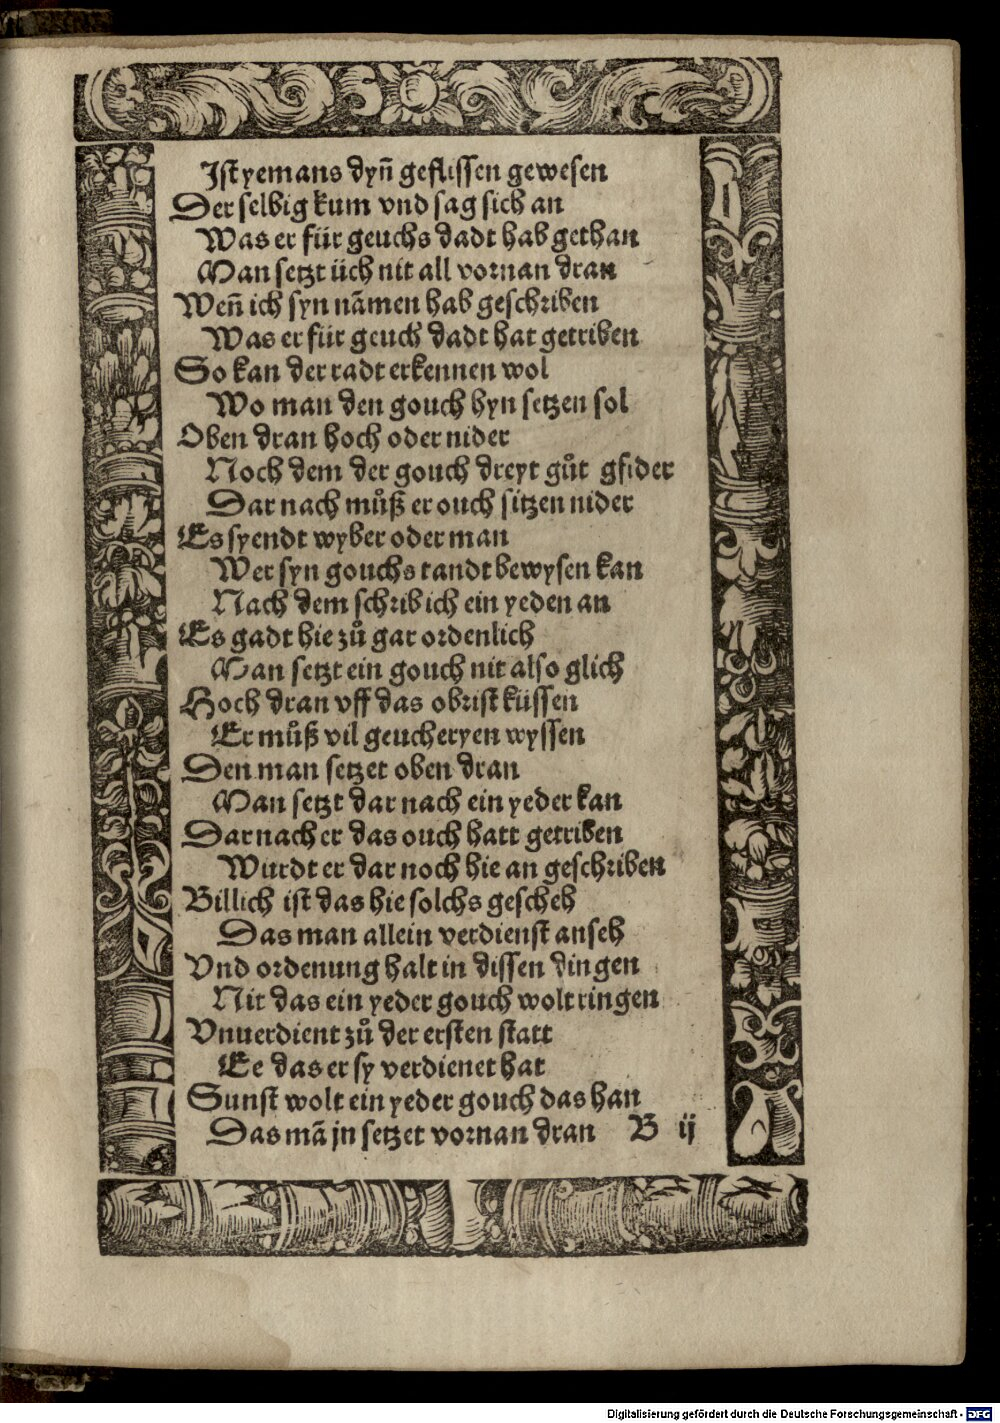 Ist yemans dyn̄ geflissen gewesen
Der selbig kum vnd sag sich an
Was er für geuchs dadt hab gethan
Man setzt üch nit all vornan dran
Wen̄ ich syn nãmen hab geschriben
Was er für geuch dadt hat getriben
So kan der radt erkennen wol
Wo man den gouch hyn setzen sol
Oben dran hoch oder nider
Noch dem der gouch dreyt gůt gfider
Dar nach můß er ouch sitzen nider
Es syendt wyber oder man
Wer syn gouchs tandt bewysen kan
Nach dem schrib ich ein yeden an
Es gadt hie zů gar ordenlich
Man setzt ein gouch nit also glich
Hoch dran vff das obrist küssen
Er můß vil geucheryen wyssen
Den man setzet oben dran
Man setzt dar nach ein yeder kan
Dar nach er das ouch hatt getriben
Wurdt er dar noch hie an geschriben
Billich ist das hie solchs gescheh
Das man allein verdienst anseh
Vnd ordenung halt in dissen dingen
Nit das ein yeder gouch wolt ringen
Vnuerdient zů der ersten statt
Ee das er sy verdienet hat
Sunst wolt ein yeder gouch das han
Das mã jn setzet vornan dran B ij
Digitalisierung gefördert durch die Deutsche Forschungsgemeinschaft - DFG